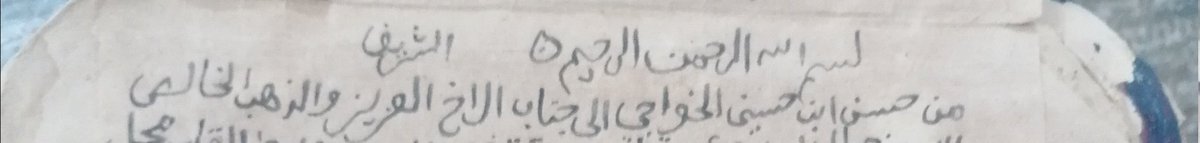 بسم الله الرحمن الرحيم ن الشريف
من حسن ابن حسين الخواجي الى جناب الاخ العزيز والذهب الخالص